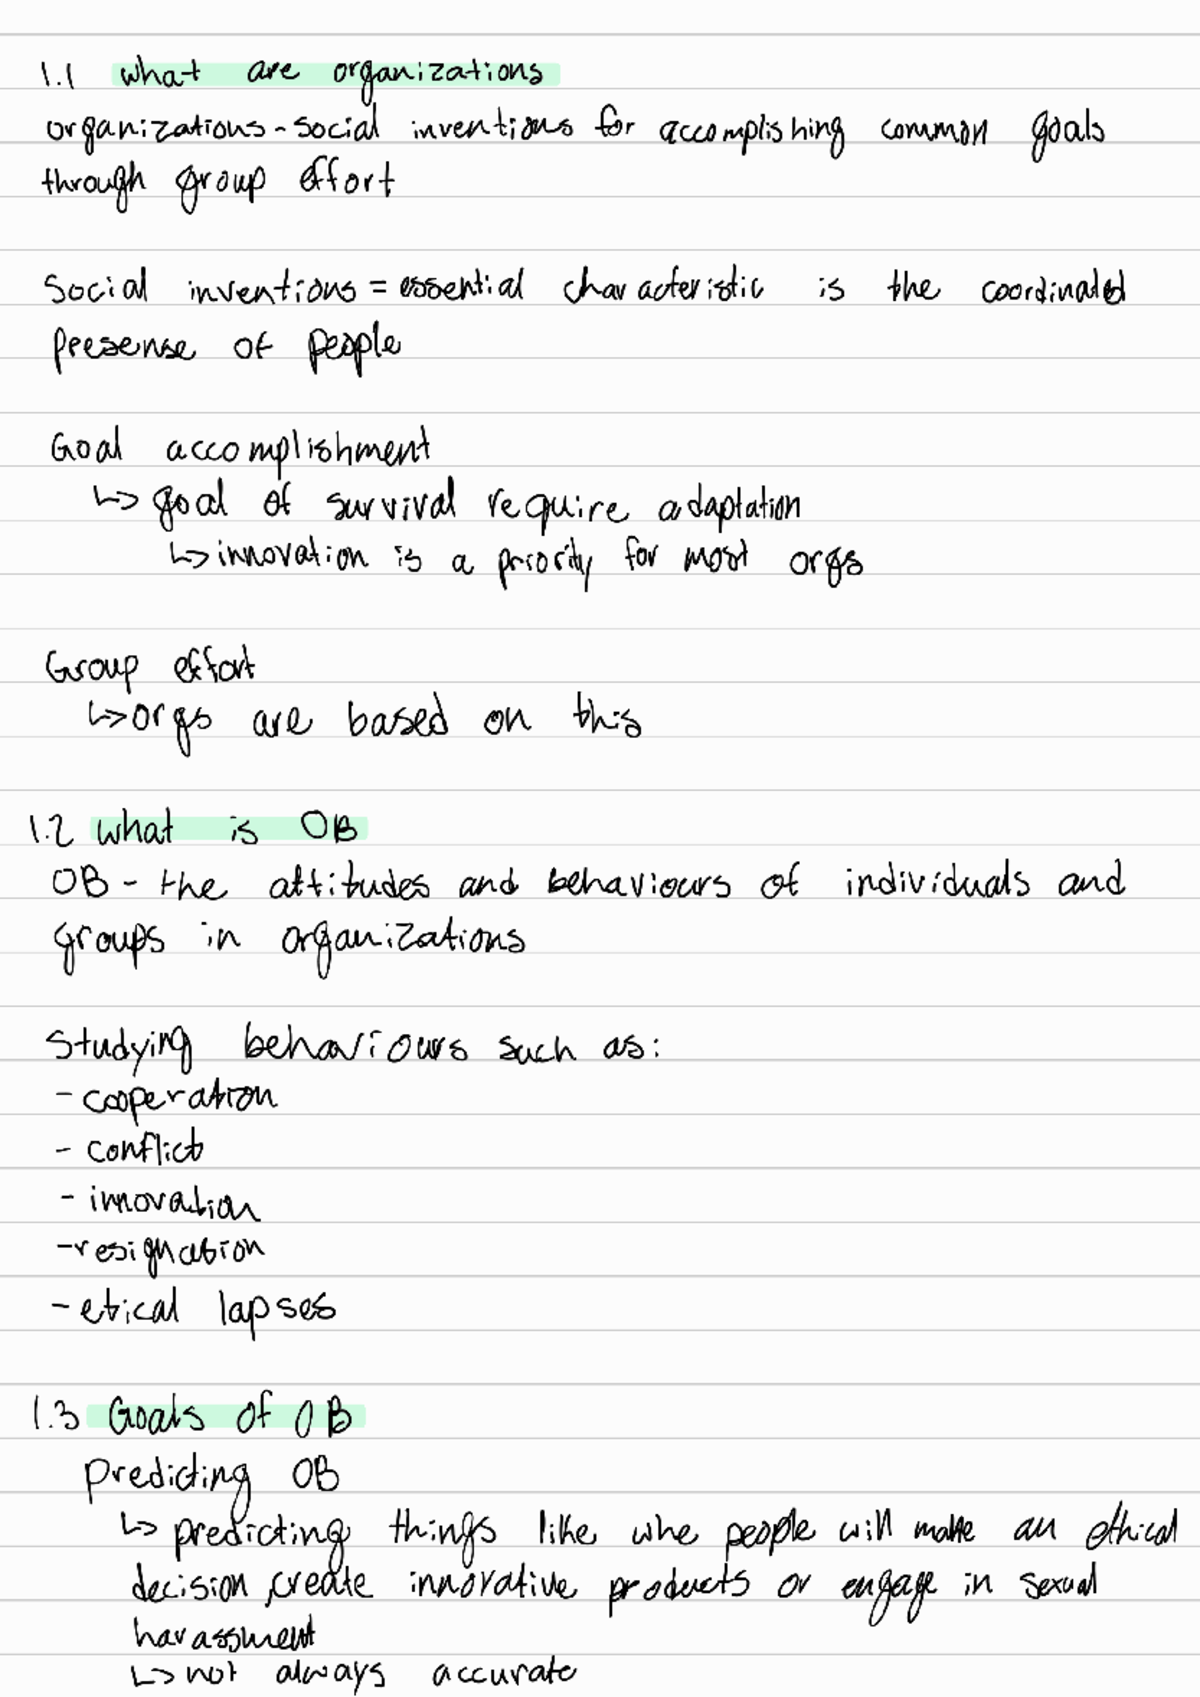 1.1 what are organizations
organizations - social inventions for accomplishing common goals
through group effort
Social inventions = essential characteristic is the coordinated
presense of people
Goal accomplishment
↳ goal of survival require adaptation
↳ innovation is a priority for most orgs
Group effort
↳ orgs are based on this
1.2 what is OB
OB - the attitudes and behaviours of individuals and
groups in organizations
Studying behaviours such as:
- cooperation
- conflict
- innovation
- resignation
- etical lapses
1.3 Goals of OB
Predicting OB
↳ predicting things like whe people will make an ethical
decision, create innovative products or engage in sexual
harassment
↳ not always accurate